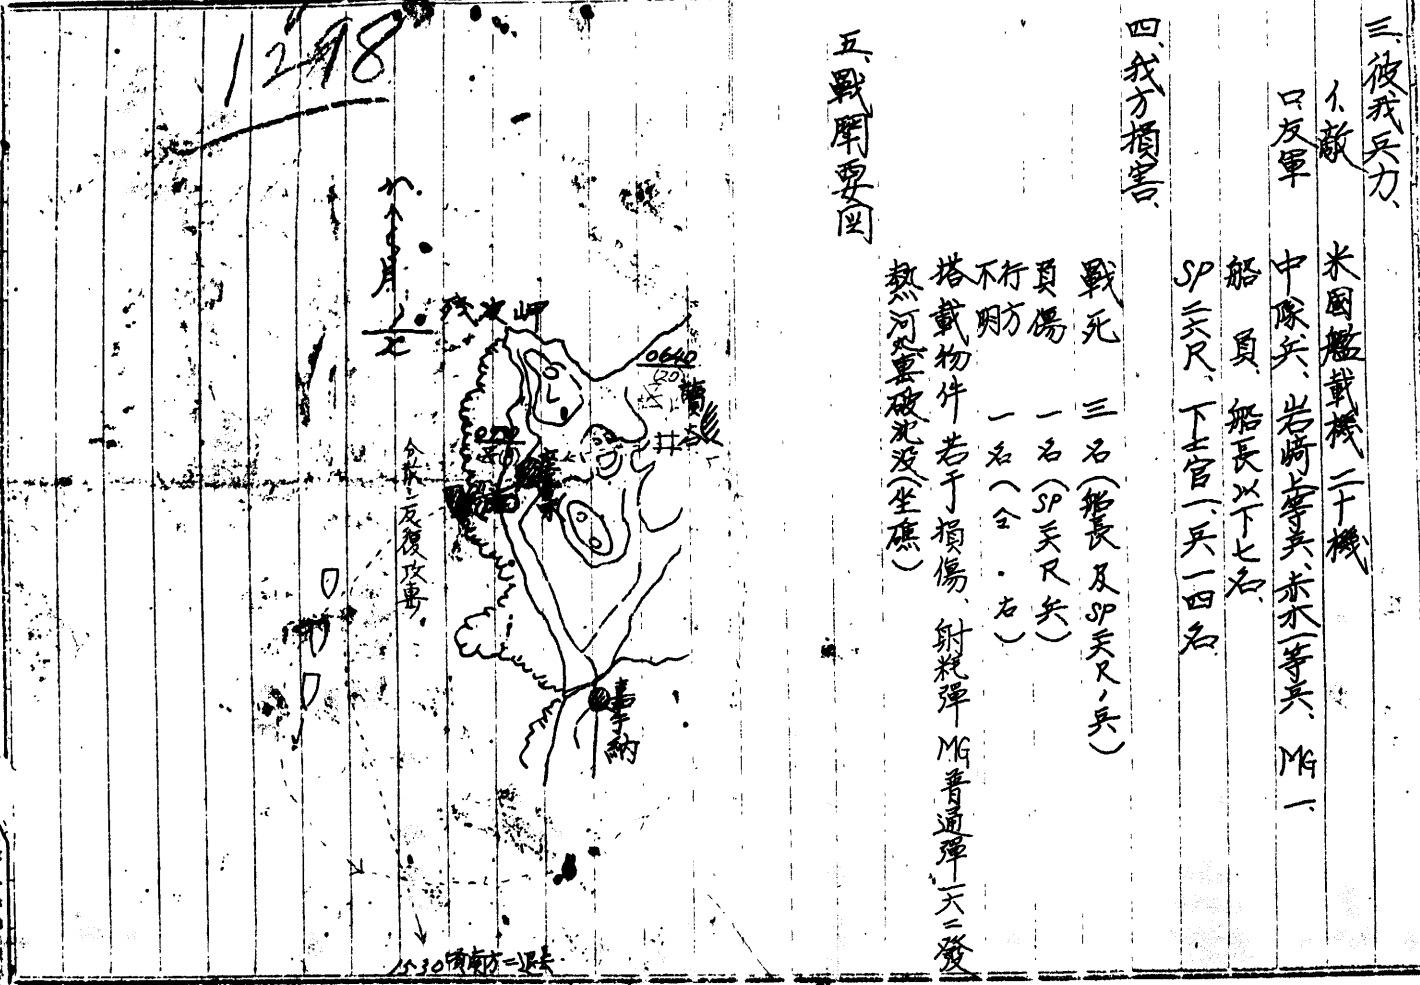 三、彼我兵力、
イ、敵 米國艦載機 二十機
ロ、友軍 中隊兵、岩崎上等兵、赤水一等兵、MG 一、
船員、船長以下七名、
SP 二六尺、下士官一、兵一四名
四、我方損害、
戰死 三名(船長及SP関尺ノ兵)
負傷 一名(SP関尺兵)
行方不明 一名(仝・右)
塔載物件若干損傷、射耗彈 MG普通彈一六二發
熱河丸裏破沈没(坐礁)
五、戰闘要図
1298
残波岬
0640
(20)
讀谷
分散シ反復攻撃、
嘉手納
1530頃南方ニ退去